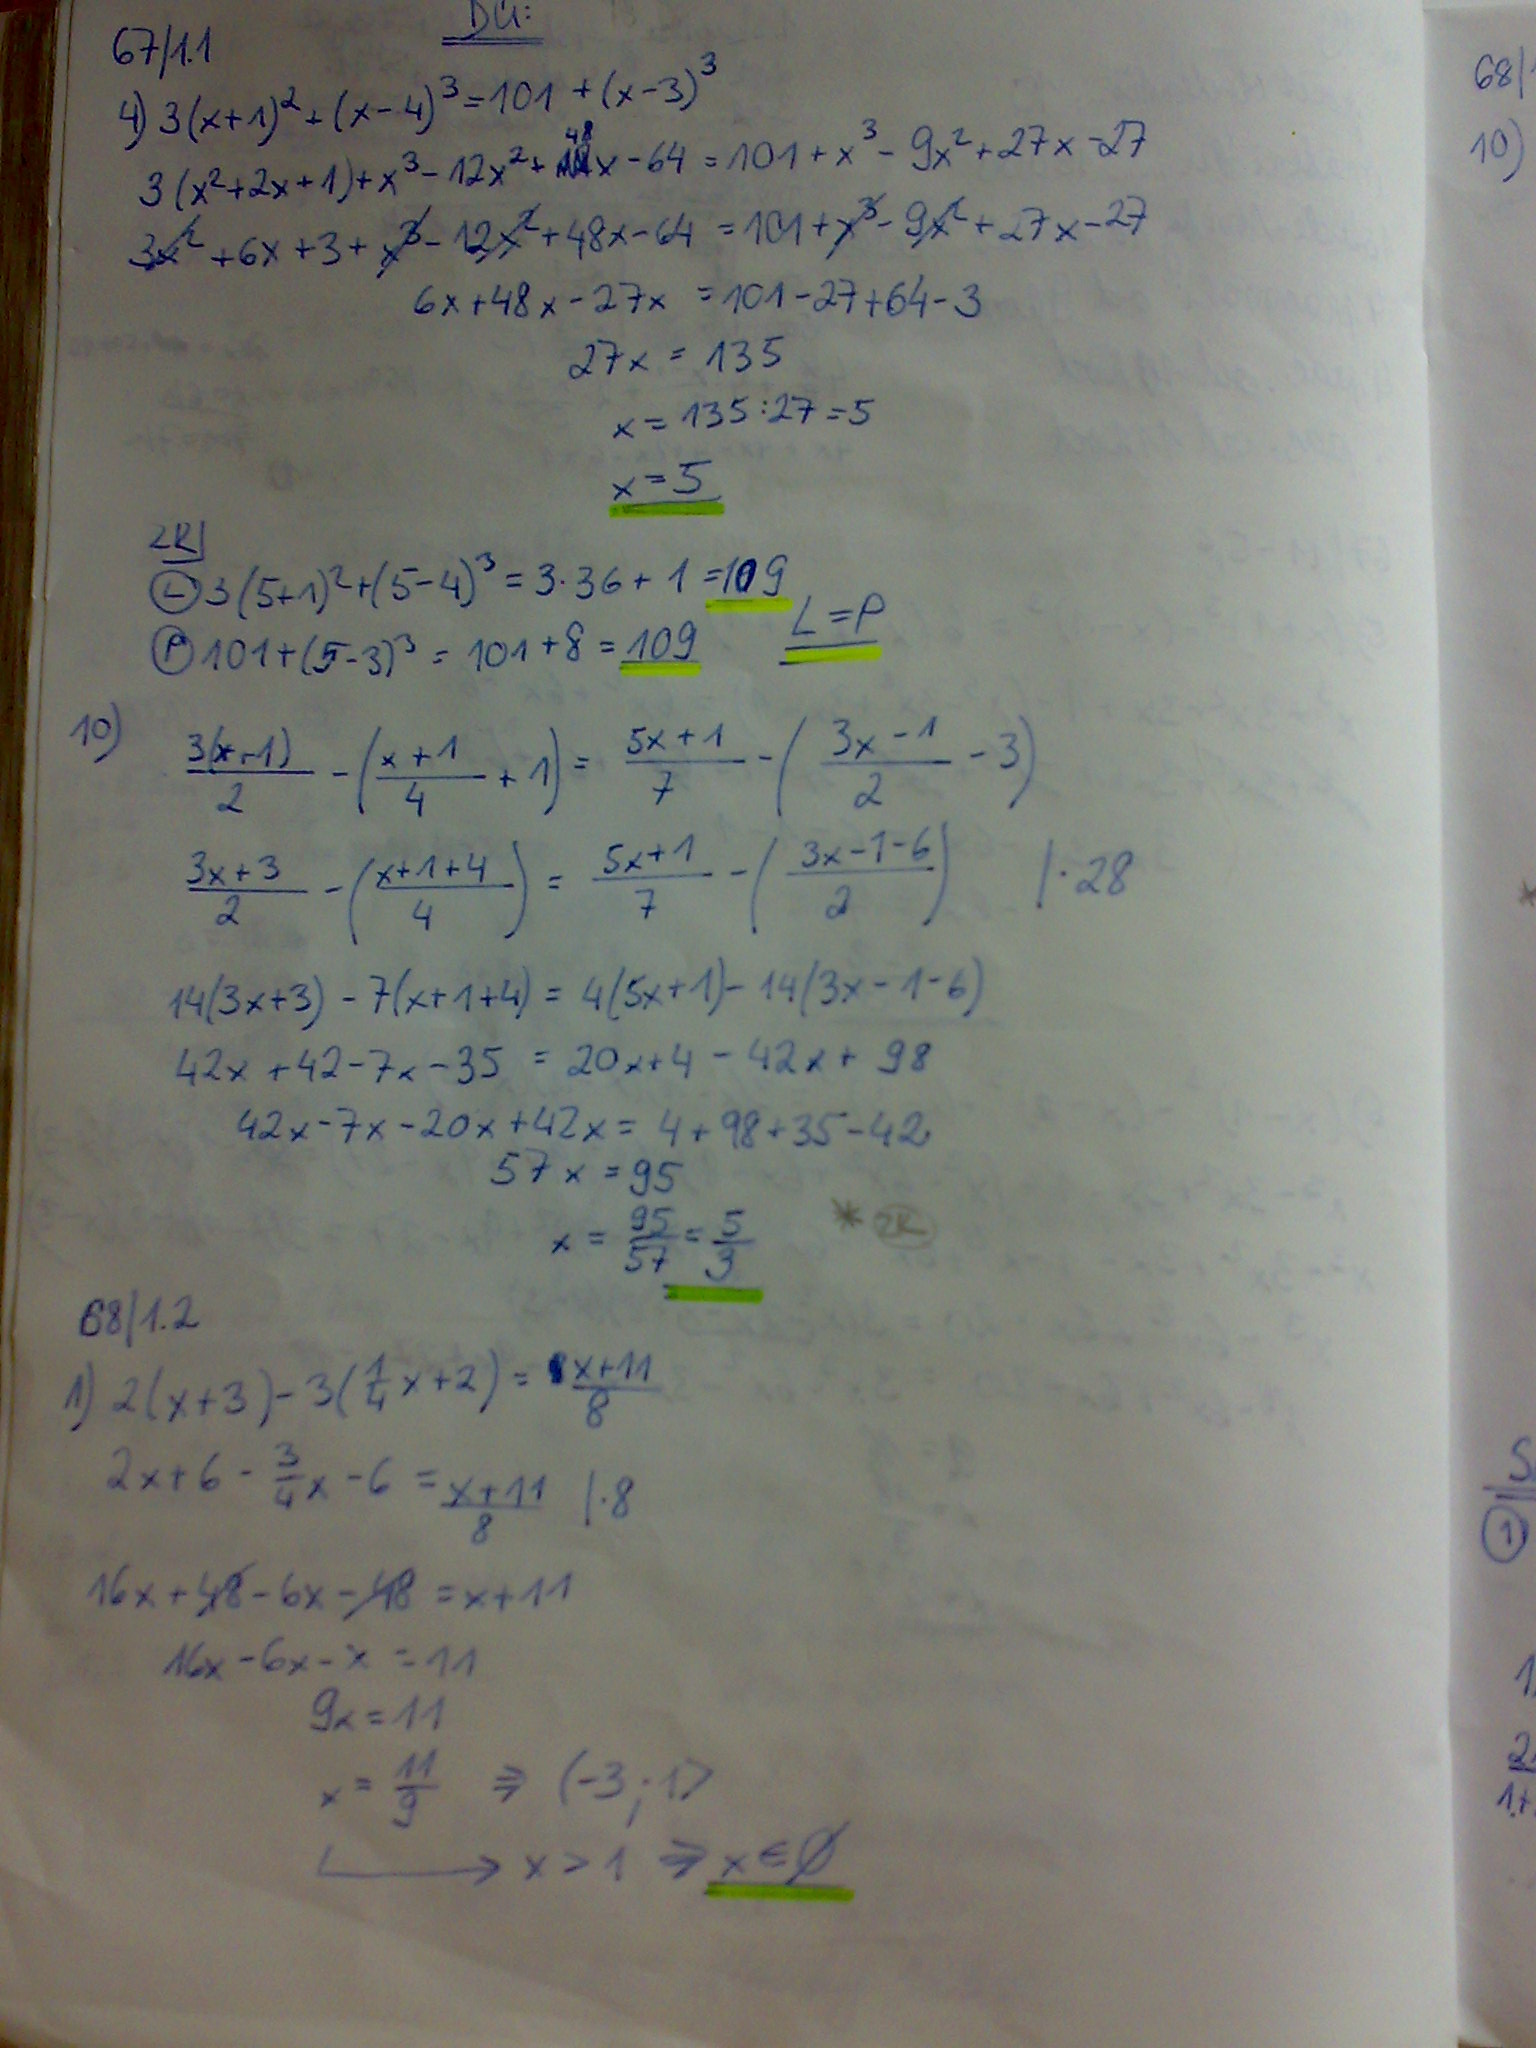 DÚ:
67/1.1
4) 3(x+1)² + (x-4)³ = 101 + (x-3)³
3(x²+2x+1) + x³ - 12x² + 48x - 64 = 101 + x³ - 9x² + 27x - 27
3x² + 6x + 3 + x³ - 12x² + 48x - 64 = 101 + x³ - 9x² + 27x - 27
6x + 48x - 27x = 101 - 27 + 64 - 3
27x = 135
x = 135:27 = 5
x = 5
ZK
Ⓛ 3(5+1)² + (5-4)³ = 3·36 + 1 = 109
Ⓟ 101 + (5-3)³ = 101 + 8 = 109 L = P
10) 3(x+1)/2 - (x+1/4 + 1) = 5x+1/7 - (3x-1/2 - 3)
3x+3/2 - (x+1+4/4) = 5x+1/7 - (3x-1-6/2) /·28
14(3x+3) - 7(x+1+4) = 4(5x+1) - 14(3x-1-6)
42x + 42 - 7x - 35 = 20x + 4 - 42x + 98
42x - 7x - 20x + 42x = 4 + 98 + 35 - 42
57x = 95
x = 95/57 = 5/3 * ZK
68/1.2
1) 2(x+3) - 3(1/4x+2) = x+11/8
2x + 6 - 3/4x - 6 = x+11/8 /·8
16x + 48 - 6x - 48 = x + 11
16x - 6x - x = 11
9x = 11
x = 11/9 ⇒ (-3; 1>
→ x > 1 ⇒ x ∈ Ø
68/1
10)
*
①